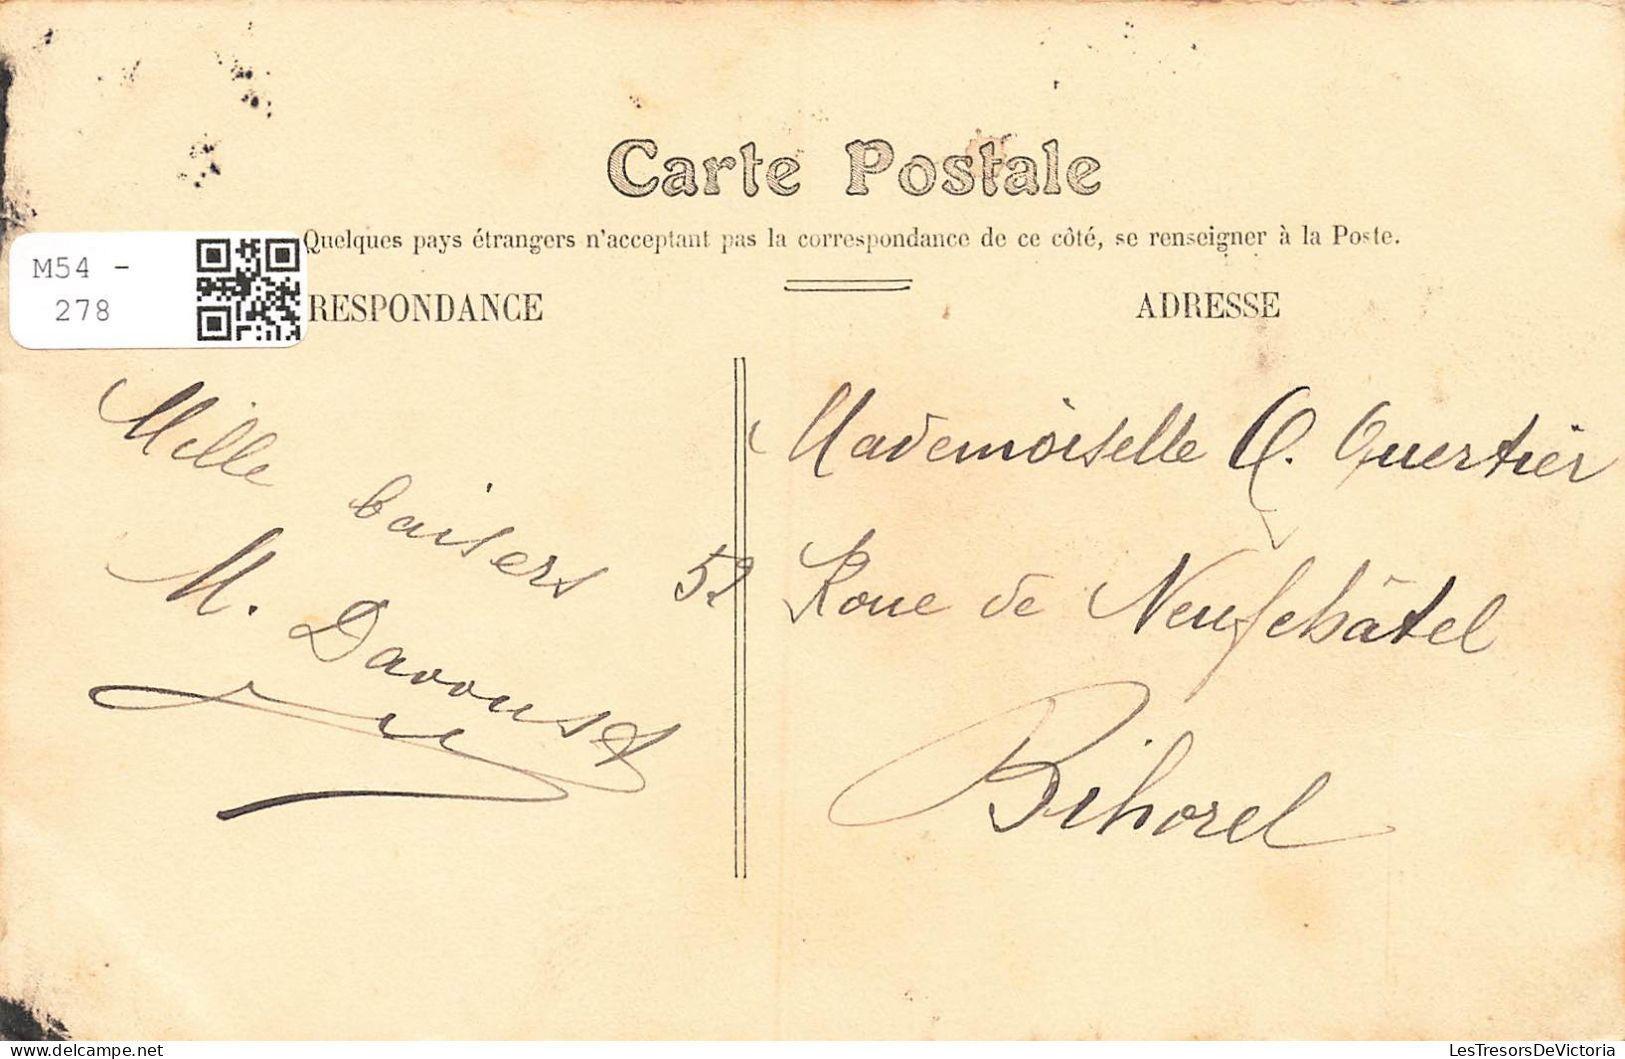 Carte Postale
Quelques pays étrangers n'acceptant pas la correspondance de ce côté, se renseigner à la Poste.
M54 -
278
RESPONDANCE
ADRESSE
Mille
baisers
M. Davoust
Mademoiselle Q. Quertier
52 Roue de Neufchâtel
Bihorel
LesTresorsDeVictoria